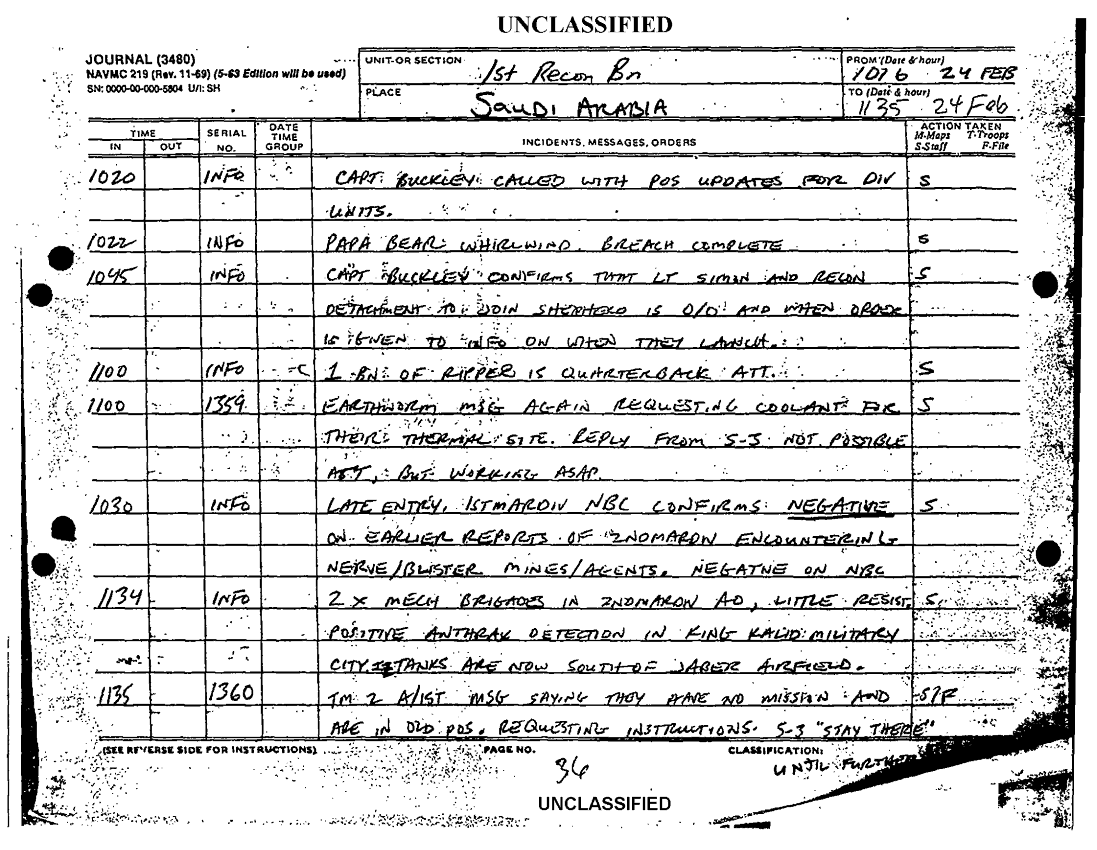 UNCLASSIFIED
JOURNAL (3480)
NAVMC 219 (Rev. 11-69) (5-63 Edition will be used)
SN: 0000-00-000-5804 U/I: SH
UNIT OR SECTION
1st Recon Bn
PLACE
SAUDI ARABIA
FROM (Date & hour)
1016 24 FEB
TO (Date & hour)
1135 24 Feb
TIME
IN OUT
SERIAL NO.
DATE TIME GROUP
INCIDENTS, MESSAGES, ORDERS
ACTION TAKEN
M-Maps T-Troops
S-Staff F-File
1020 INFO CAPT. BUCKLEY CALLED WITH POS UPDATES FOR DIV S
UNITS.
1022 INFO PAPA BEAR: WHIRLWIND. BREACH COMPLETE S
1045 INFO CAPT BUCKLEY CONFIRMS THAT LT SIMON AND RECON S
DETACHMENT TO JOIN SHEPHERD IS O/O AND WHEN ORDER
IS GIVEN TO INFO ON WHEN THEY LAUNCH.
1100 INFO 1 BN OF RIPPER IS QUARTERBACK ATT. S
1100 1359 EARTHWORM MSG AGAIN REQUESTING COOLANT FOR S
THEIR THERMAL SITE. REPLY FROM S-3 NOT POSSIBLE
ATT, BUT WORKING ASAP.
1030 INFO LATE ENTRY. 1STMARDIV NBC CONFIRMS NEGATIVE S
ON EARLIER REPORTS OF 2NDMARDIV ENCOUNTERING
NERVE/BLISTER MINES/AGENTS. NEGATIVE ON NBC
1134 INFO 2 X MECH BRIGADES IN 2NDMARDIV AO, LITTLE RESIST. S
POSITIVE ANTHRAX DETECTION IN KING KALID MILITARY
CITY. TANKS ARE NOW SOUTH OF JABER AIRFIELD.
1135 1360 TM 2 A/1ST MSG SAYING THEY HAVE NO MISSION AND S/F
ARE IN OLD POS. REQUESTING INSTRUCTIONS. S-3 "STAY THERE"
(SEE REVERSE SIDE FOR INSTRUCTIONS) PAGE NO. CLASSIFICATION:
36 UNTIL
UNCLASSIFIED